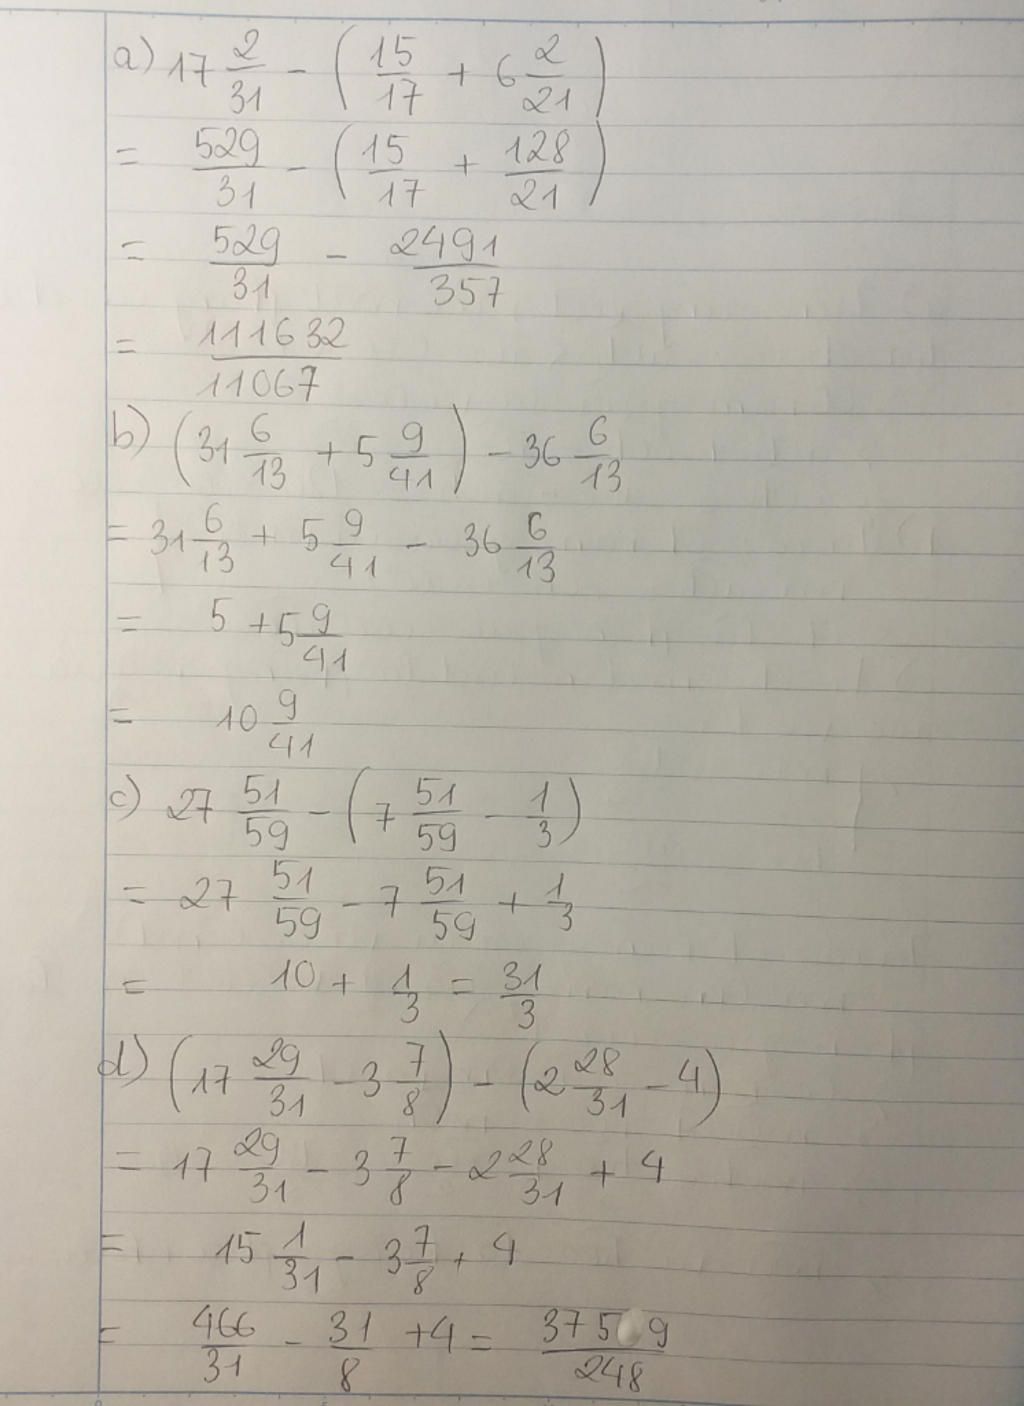 a) 17 2/31 - (15/17 + 6 2/21)
= 529/31 - (15/17 + 128/21)
= 529/31 - 2491/357
= 111632/11067
b) (31 6/13 + 5 9/41) - 36 6/13
= 31 6/13 + 5 9/41 - 36 6/13
= 5 + 5 9/41
= 10 9/41
c) 27 51/59 - (7 51/59 - 1/3)
= 27 51/59 - 7 51/59 + 1/3
= 10 + 1/3 = 31/3
d) (17 29/31 - 3 7/8) - (2 28/31 - 4)
= 17 29/31 - 3 7/8 - 2 28/31 + 4
= 15 1/31 - 3 7/8 + 4
= 466/31 - 31/8 + 4 = 375 9/248